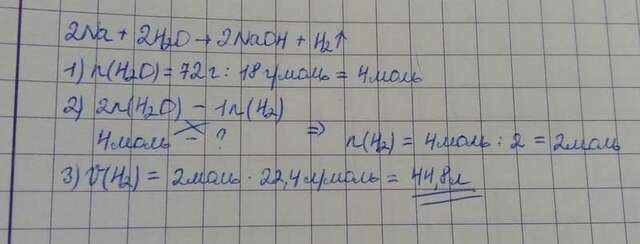 2Na + 2H₂O → 2NaOH + H₂↑
1) n(H₂O) = 72г : 18г/моль = 4моль
2) 2n(H₂O) – 1n(H₂)
4моль – ? => n(H₂) = 4моль : 2 = 2моль
3) V(H₂) = 2моль · 22,4л/моль = 44,8л